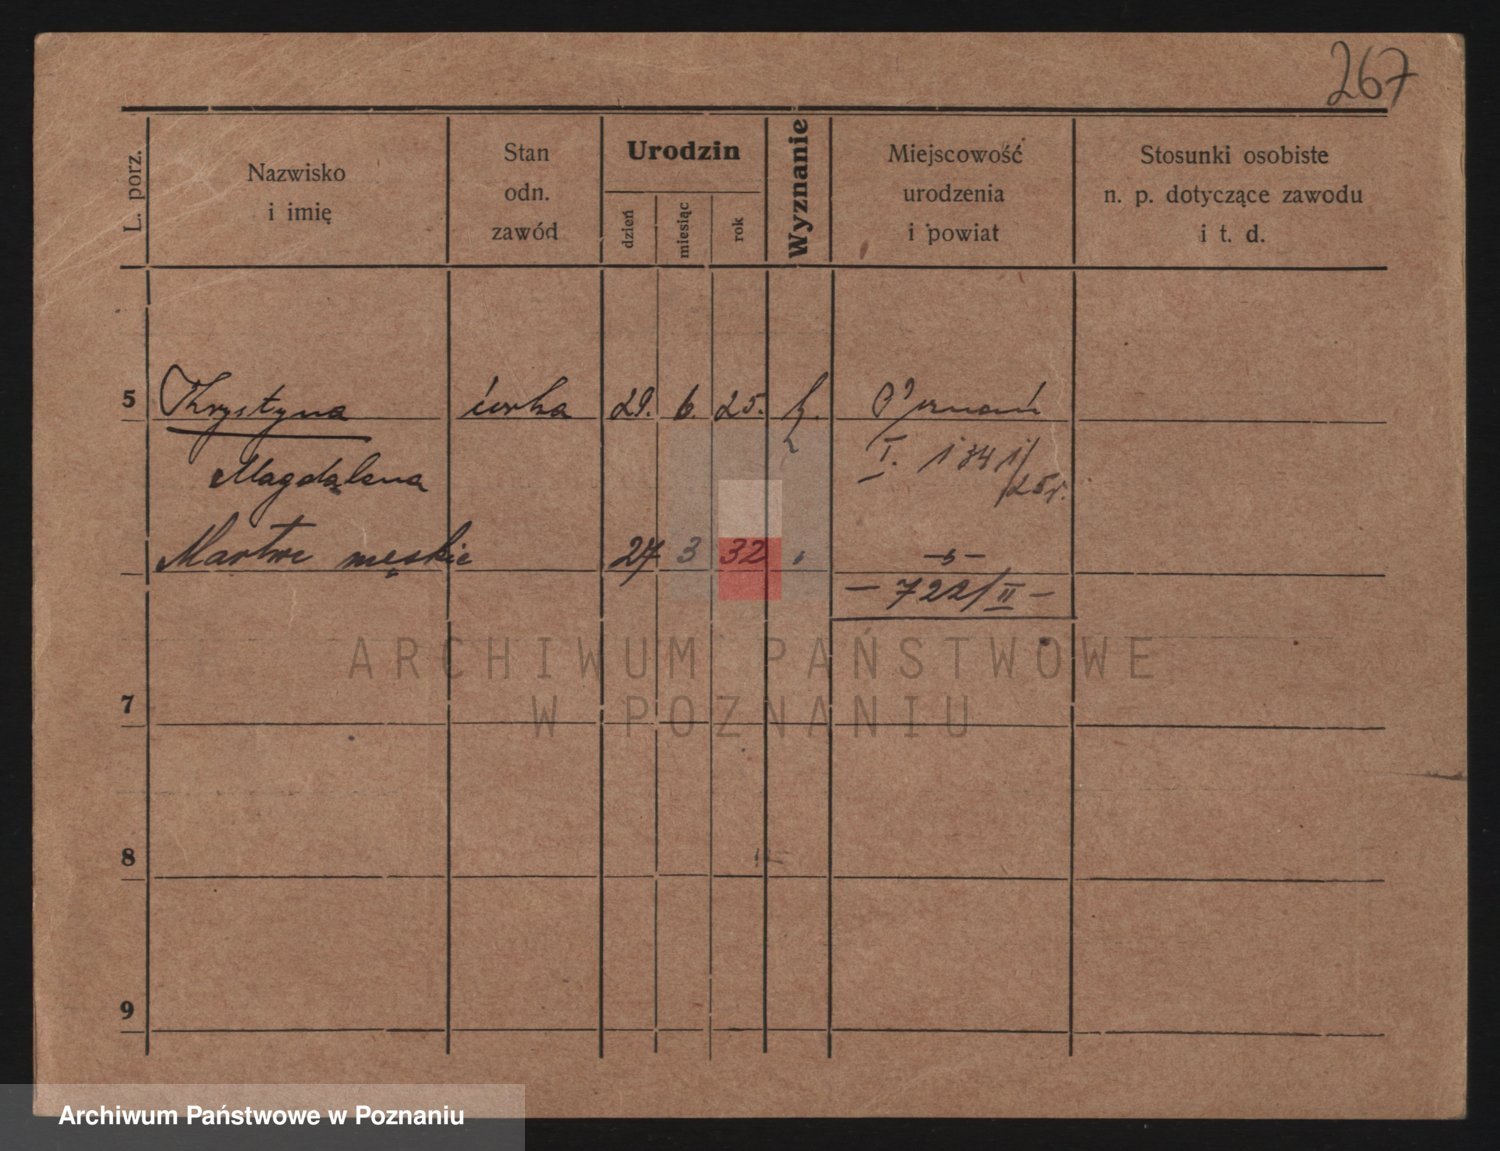 267
L. porz.
Nazwisko
i imię
Stan
odn.
zawód
Urodzin
dzień
miesiąc
rok
Wyznanie
Miejscowość
urodzenia
i powiat
Stosunki osobiste
n. p. dotyczące zawodu
i t. d.
5 Krystyna córka 29. 6. 25. k. Poznań
Magdalena I. 1341/25r.
Martwe męskie 27 3 32 " -"-
- 722/II -
7
8
9
ARCHIWUM PAŃSTWOWE
W POZNANIU
Archiwum Państwowe w Poznaniu